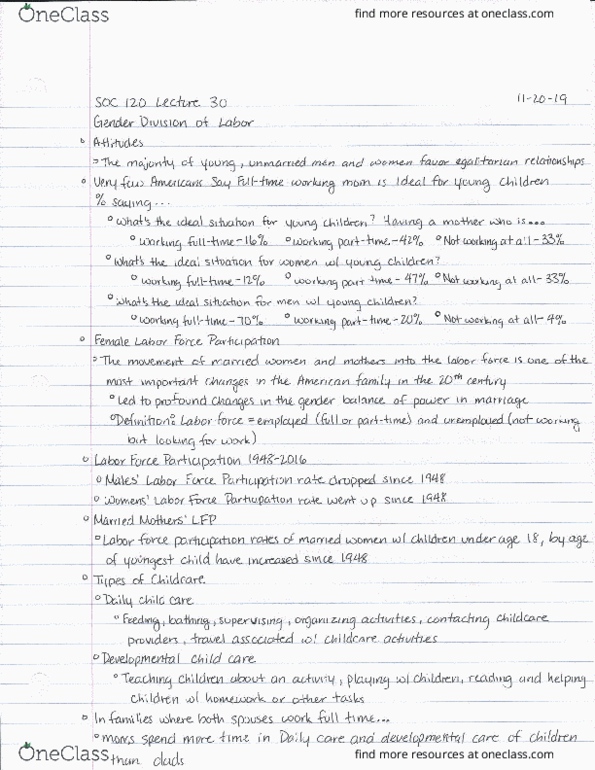 OneClass find more resources at oneclass.com
SOC 120 Lecture 30 11-20-19
Gender Division of Labor
Attitudes
The majority of young, unmarried men and women favor egalitarian relationships
Very few Americans Say Full-time working mom is Ideal for young children
% saying...
What's the ideal situation for young children? Having a mother who is...
working full-time-16% working part-time-42% Not working at all-33%
What's the ideal situation for women w/ young children?
working full-time-12% working part time-47% Not working at all-33%
What's the ideal situation for men w/ young children?
working full-time-70% working part-time-20% Not working at all-4%
Female Labor Force Participation
The movement of married women and mothers into the labor force is one of the
most important changes in the American family in the 20th century
Led to profound changes in the gender balance of power in marriage
Definition: Labor force = employed (full or part-time) and unemployed (not working
but looking for work)
Labor Force Participation 1948-2016
Males' Labor Force Participation rate dropped since 1948
Womens' Labor Force Participation rate went up since 1948
Married Mothers' LFP
Labor force participation rates of married women w/ children under age 18, by age
of youngest child have increased since 1948
Types of Childcare
Daily child care
Feeding, bathing, supervising, organizing activities, contacting childcare
providers, travel associated w/ childcare activities
Developmental child care
Teaching children about an activity, playing w/ children, reading and helping
children w/ homework or other tasks
In families where both spouses work full time...
moms spend more time in Daily care and developmental care of children
than dads
OneClass find more resources at oneclass.com